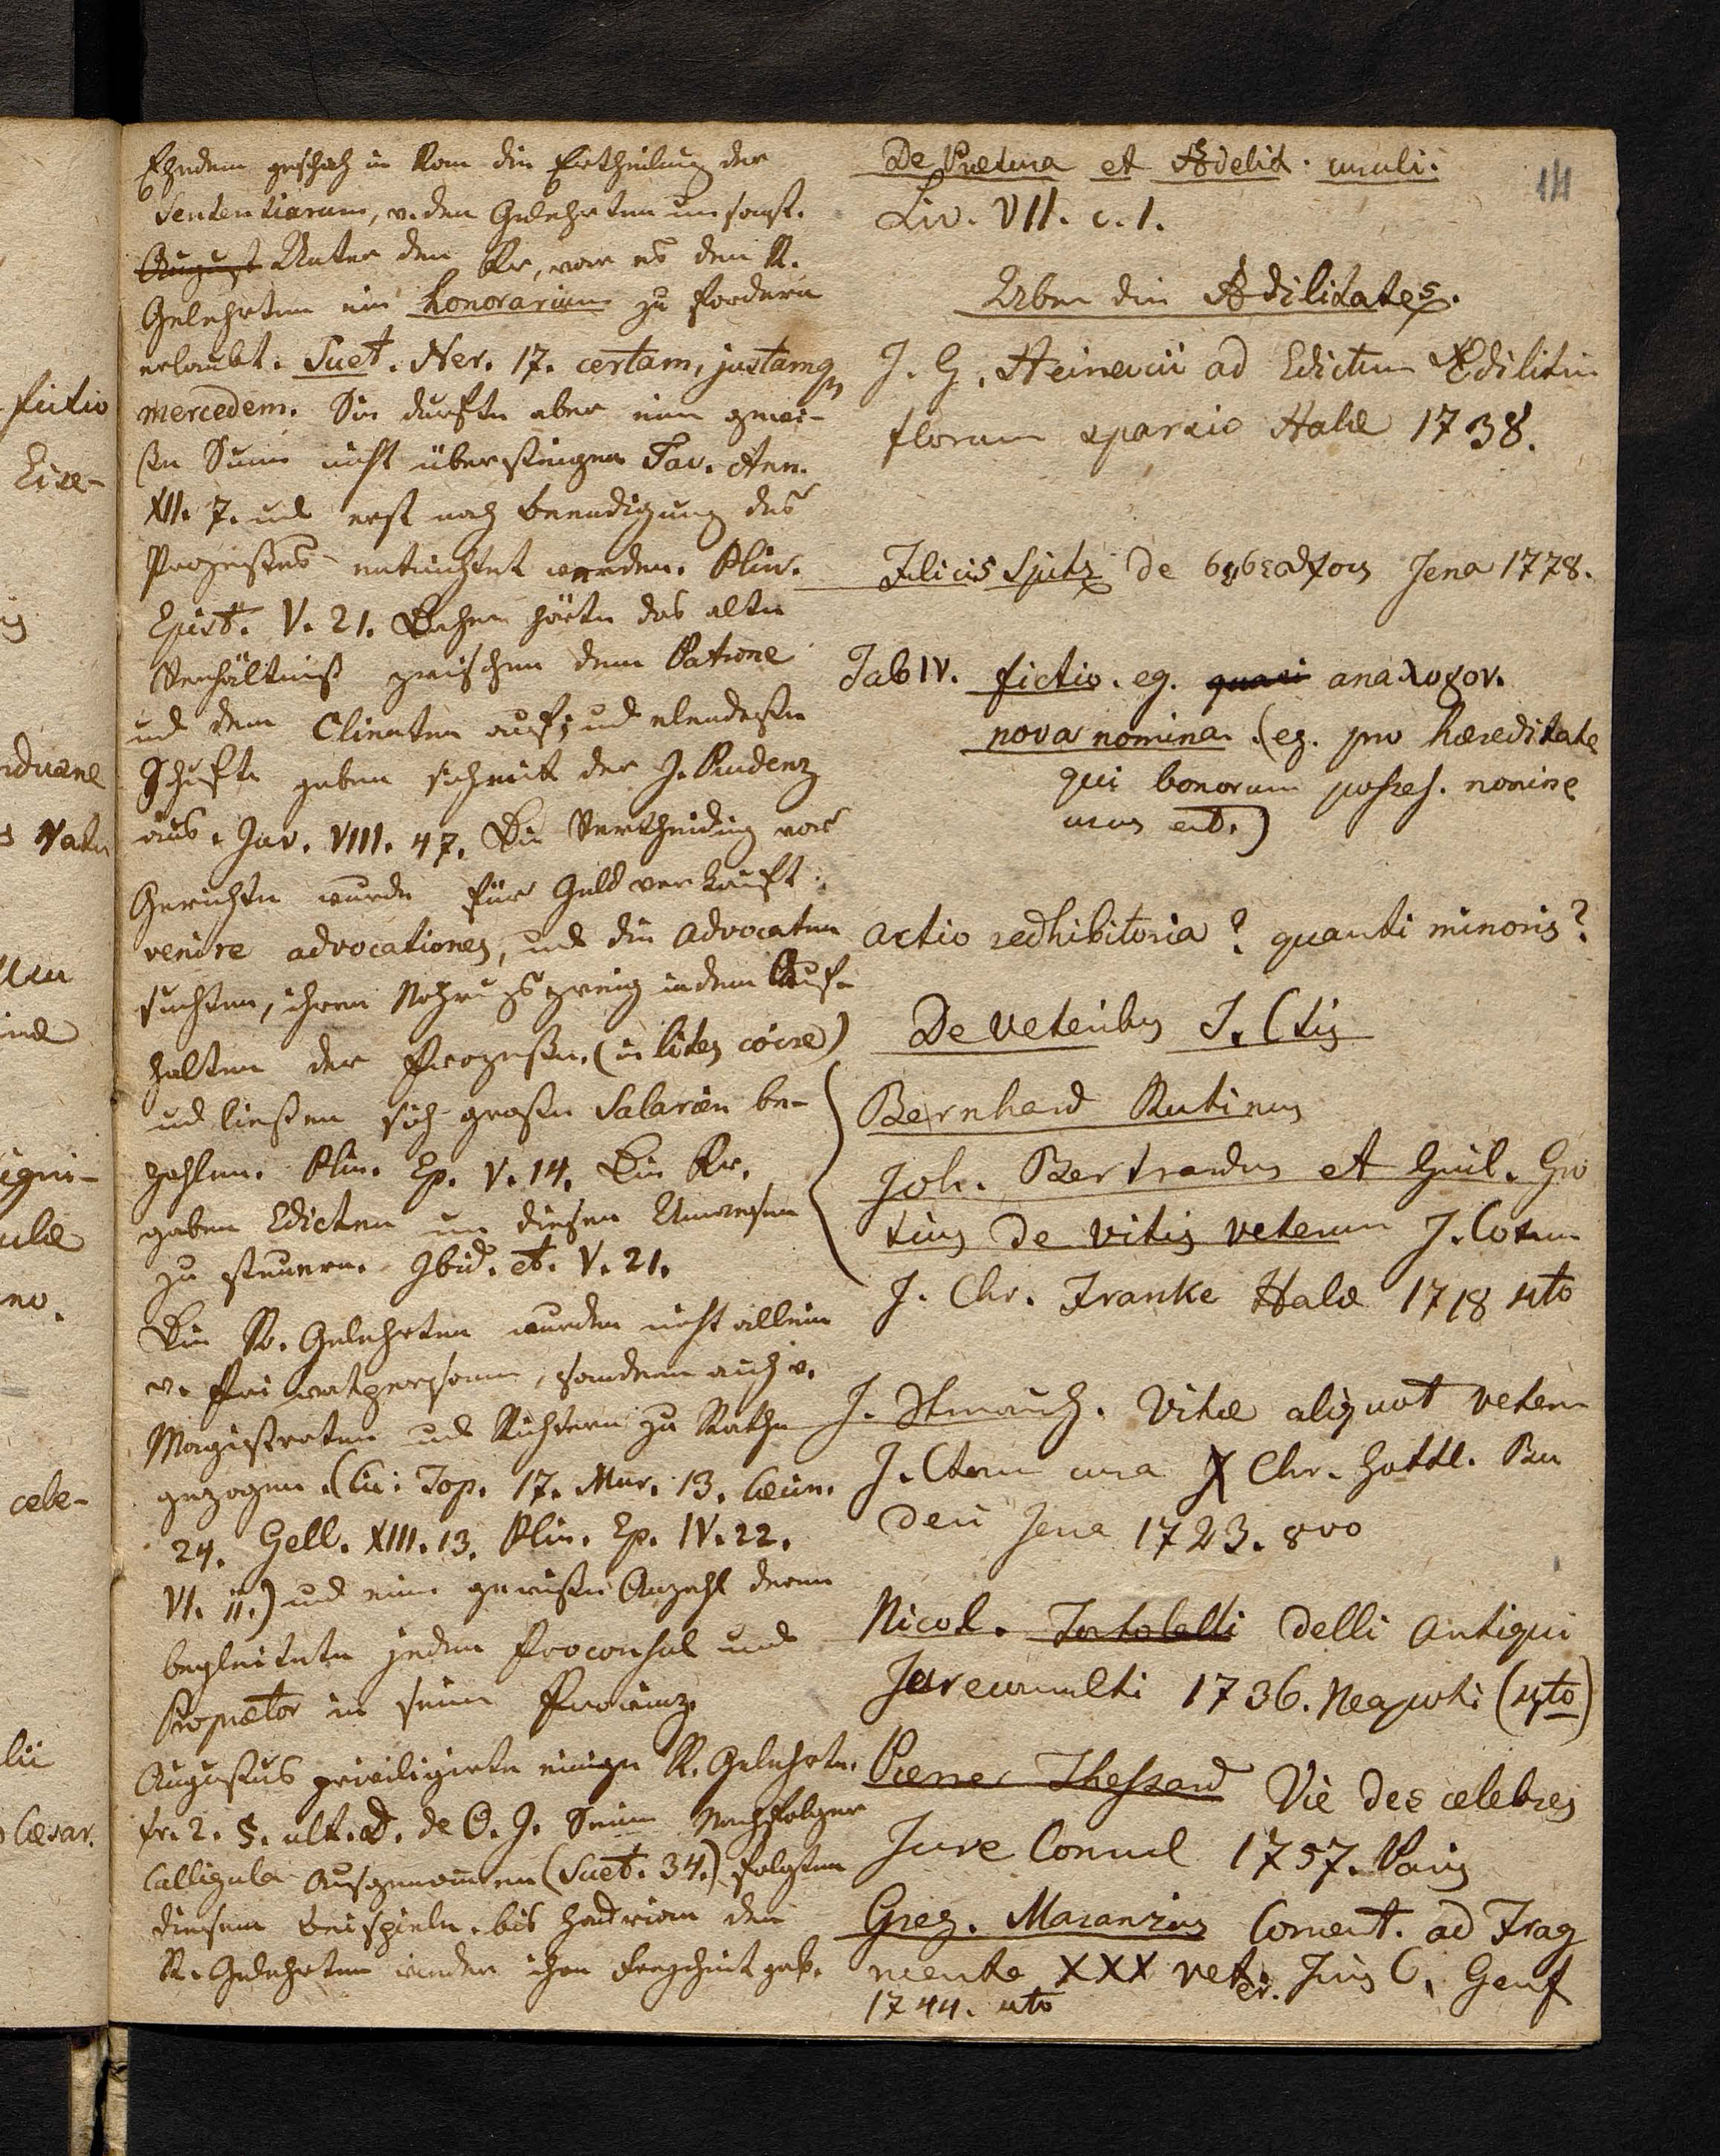 Ehedem geschah in Rom die Ertheilung der
Sententiarum, v. den Gelehrten umsonst.
August Unter den Kr, war es den R.
Gelehrten ein honorarium zu fordern
erlaubt. Suet. Ner. 17. certam, justamq
mercedem. Sie durften aber eine gewi-
ße Sume nicht übersteigen Tac. Ann.
XII. 7. und erst nach Beendigung des
Prozeßes entrichtet werden. Plin.
Epist. V. 21. Daher hörte das alte
Verhältniß zwischen dem Patrone
und dem Clienten auf; und elendeste
Schufte gaben sich mit der J. Prudenz
aus. Juv. VIII. 47. Die Vertheidig vor
Gerichte wurde für Geld verkauft.
venire advocationes, und die Advocaten
suchten, ihren Nahrungszweig in dem Auf-
halten der Prozeße. (in lites coire)
und ließen sich große Salarien be-
zahlen. Plin. Ep. V. 14. Die Kr.
gaben Edicten um diesen Unwesen
zu steuern. Ibid. et. V. 21.
Die R. Gelehrten wurden nicht allein
v. Privatpersonen, sondern auch v.
Magistraten und Richtern zu Rathe
gezogen. (Cic: Top. 17. Mur. 13. Cæcin.
24. Gell. XIII. 13. Plin. Ep. IV. 22.
VI. ii.) und eine gewiße Anzahl deren
begleitete jeden Proconsul und
Proprætor in seine Provinz.
Augustus priviligirte einige R. Gelehrte.
fr. 2. §. ult. D. de O. J. Seine Nachfolger
Calligula Ausgenommen (Suet. 34.) folgten
diesem Beispiele. bis Hadrian den
R. Gelehrten wieder ihre Freyheit gab.
De Prætura et Ædelit. curuli.
Liv. VII. c. 1.
14
Ueber die Ædilitates.
J. G. Heineccii ad Edictum Ædilitiu
florum sparsio Halæ 1738.
Felicis Spitz De Jena 1778.
Tab IV. fictio. eg. quasi anaλογον.
nova nomina. (eg. pro hæreditate
qui bonorum posses. nomine
usus est.)
Actio redhibitoria? quanti minoris?
De veteribus J. Ctis
Bernhard Rutinus
Joh. Bertrandus et Guil. Gro
tius de vitis veterum J. Cotum
J. Chr. Franke Halæ 1718 4to
J. Strauch. Vitæ aliquot veteru
J. Ctorum cura X Chr. Gottl. Bu
deri Jena 1723. 8vo
Nicol. Tortoletti delli Antiqui
Jureconsulti 1736. Neapoli (4to)
Pierre Theßard Vie des celebres
Jure Consul 1757. Paris
Greg. Maranzius Coment. ad Frag
menta XXX veter. Juris C. Genf
1744. 4to
fictio
cele-
Cæsar.